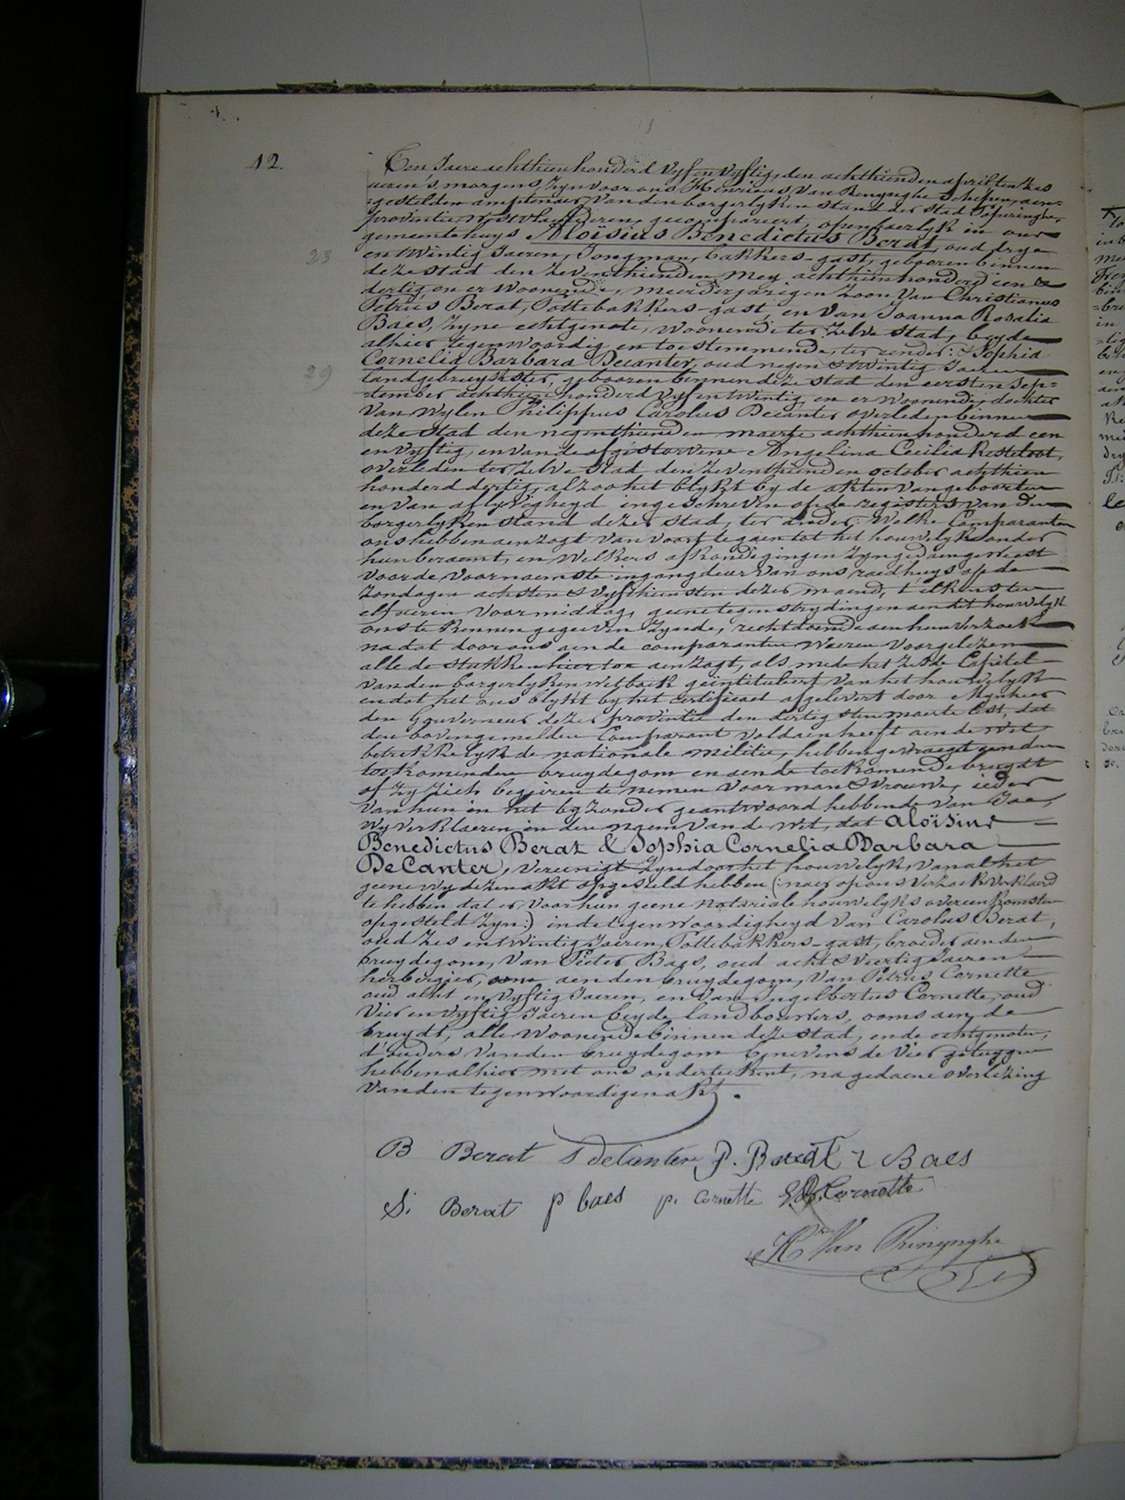 12.
Ten Jaere achthien honderd vyf en vyftig, den achthienden april ten zes
ueren 's morgens, zyn voor ons Henricus Van Renynghe schepen, aen-
gestelden amptenaer van den borgerlyken stand der stad Poperinghe,
provintie Westvlaenderen, gecompareert openbaerlyk in ons
gemeentehuys Aloïsius Benedictus Berat, oud drye
23
en twintig Jaeren, Jongman, bakkers-gast, gebooren binnen
deze stad den zeventhienden mey achthien honderd een &
dertig en er woonende, meerderjarigen zoon van Christianus
Petrus Berat, Pottebakkers-gast, en van Joanna Rosalia
Baes, zyne echtgenote, woonende ter zelve stad, beyde
alhier tegenwoordig en toestemmende, ter eender: & Sophia
Cornelia Barbara Decanter, oud negen & twintig Jaeren
29
landgebruykster, gebooren binnen deze stad den eersten Sep-
tember achthien honderd vyf en twintig, en er woonende, dochter
van wylen Philippus Carolus Decanter overleden binnen
deze stad den negenthienden maerte achthien honderd een
en vyftig, en van de afgestorvene Angelina Cecilia Resteloot,
overleden ter zelve stad den zeventhienden october achthien
honderd dertig, alzoo het blykt by de akten van geboorten
en van aflyvigheyd ingeschreven op de registers van den
borgerlyken stand dezer stad, ter ander. Welke Comparanten
ons hebben aenzogt van voort te gaen tot het houwelyk onder
hun beraemt, en welkers afkondigingen zyn gedaen geweest
voor de voornaemste ingangdeur van ons raedhuys op de
zondagen achsten & vyfthiensten dezer maend, t'elkens ten
elf ueren voormiddag, geene tegenstrydingen aen dit houwelyk
ons te kennen gegeeven zynde, rechtdoende aen hun verzoek
na dat door ons aen de comparanten waeren voorgelezen
alle de stukken hier toe aenzogt, als mede het zesde Capittel
van den borgerlyken wetboek geïntituleert van het houwelyk
en dat het ons blykt by het certificaet afgelevert door Mynheer
den Gouverneur dezer provintie den dertigsten maerte lest, dat
den bovengemelden Comparant voldaen heeft aen de wet
betrekkelyk de nationale militie, hebben gevraegt aen den
toekomenden bruydegom en aen de toekomende bruydt
of zy zich begeeren te nemen voor man & vrouwe, ieder
van hun in het byzonder geantwoord hebbende van Jae,
wy verklaeren in den naem van de wet, dat Aloïsius
Benedictus Berat & Sophia Cornelia Barbara
DeCanter, vereenigt zyn door het houwelyk, van al het
geene wy dezen akt opgesteld hebben (: naer op ons verzoek verklaerd
te hebben dat er voor hun geene notariale houwelyks overeenkomsten
opgesteld zyn:) in de tegenwoordigheyd van Carolus Berat,
oud zes en twintig Jaeren, Pottebakkers-gast, broeder aen den
bruydegom, van Pieter Baes, oud acht & veertig Jaeren
herbergier, oom aen den bruydegom, van Petrus Cornette
oud acht en vyftig Jaeren, en van Ingelbertus Cornette, oud
vier en vyftig Jaeren beyde landbouwers, ooms aen de
bruydt, alle woonende binnen deze stad, en de echtgenoten,
d'ouders van den bruydegom benevens de vier getuygen
hebben alhier met ons onderteekent, na gedaene overlezing
van den tegenwoordigen akt.
B Berat S deCanter P. Berat R Baes
S. Berat p baes p. Cornette Cornette
H. Van Renynghe